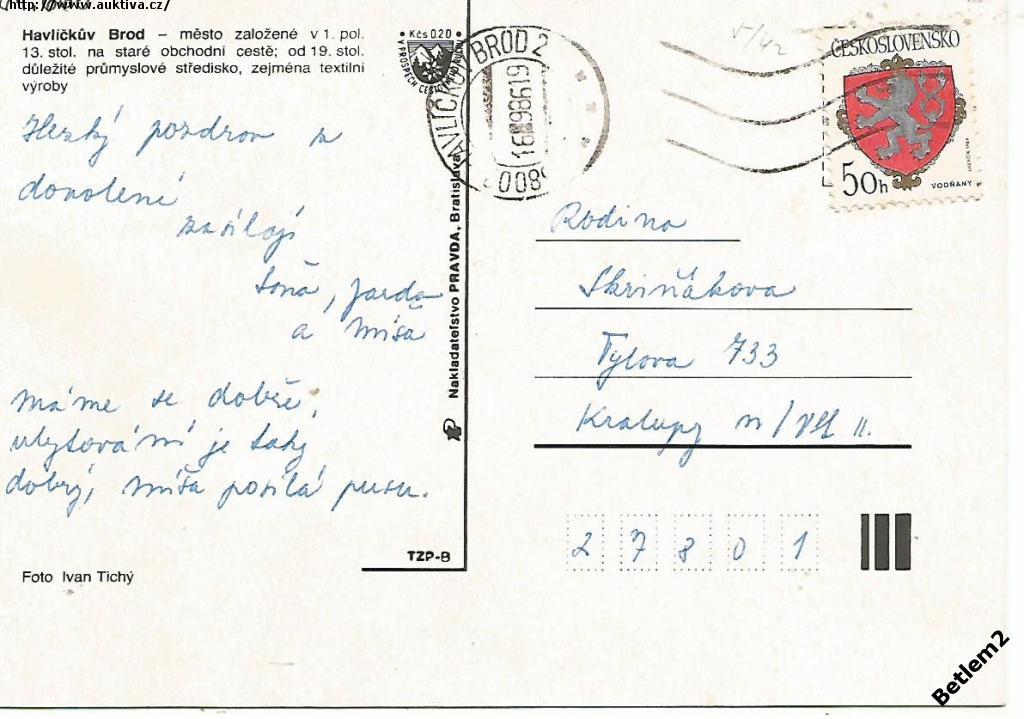 http://www.auktiva.cz/
Havlíčkův Brod – město založené v 1. pol.
13. stol. na staré obchodní cestě; od 19. stol.
důležité průmyslové středisko, zejména textilní
výroby
Kčs 0.20
HAVLÍČKŮV BROD 2
ČESKOSLOVENSKO
50h
VODŇANY
Hezký pozdrav z
dovolené
zasílají
Soňa, Jarda
a Míša
Máme se dobře,
ubytování je taky
dobrý, Míša posílá pusu.
Nakladateľstvo PRAVDA, Bratislava
TZP-B
Foto Ivan Tichý
Rodina
Skriňákova
Tylova 733
Kralupy n/Vlt II.
27801
Betlem2